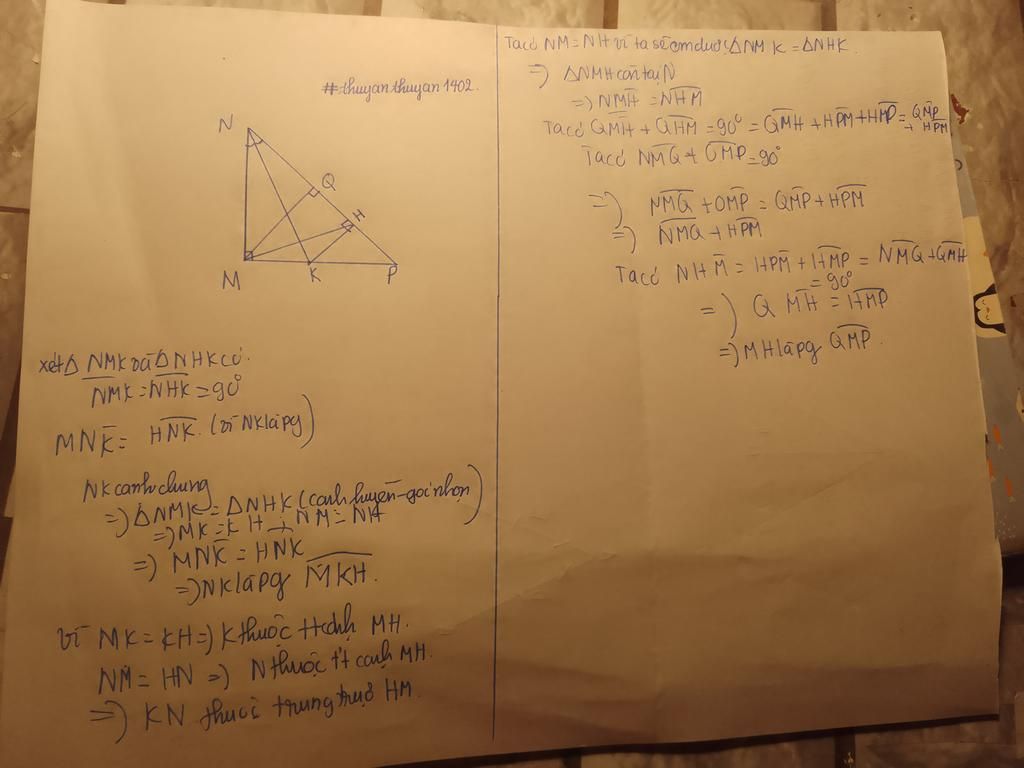 #thuyanthuyan1402.
N
Q
H
M
K
P
xét Δ NMK và Δ NHK có.
NMK = NHK = 90°
MNK = HNK. (vì NK là pg)
NK cạnh chung
=) ΔNMK = ΔNHK (cạnh huyền - góc nhọn)
=) MK = KH, NM = NH
=) MNK = HNK
=) NK là pg MKH.
Vì MK = KH =) K thuộc tt cạnh MH.
NM = HN =) N thuộc tt cạnh MH.
=) KN thuộc trung trực HM.
Ta có NM = NH vì ta sẽ cm được ΔNMK = ΔNHK.
=) ΔNMH cân tại N
=) NMH = NHM
Ta có QMH + QHM = 90° = QMH + HPM + HMP = QMP + HPM
Ta có NMQ + QMP = 90°
=) NMQ + QMP = QMP + HPM
=) NMQ + HPM
Ta có NHM = HPM + HMP = NMQ + QMH
= 90°
=) QMH = HMP
=) MH là pg QMP.